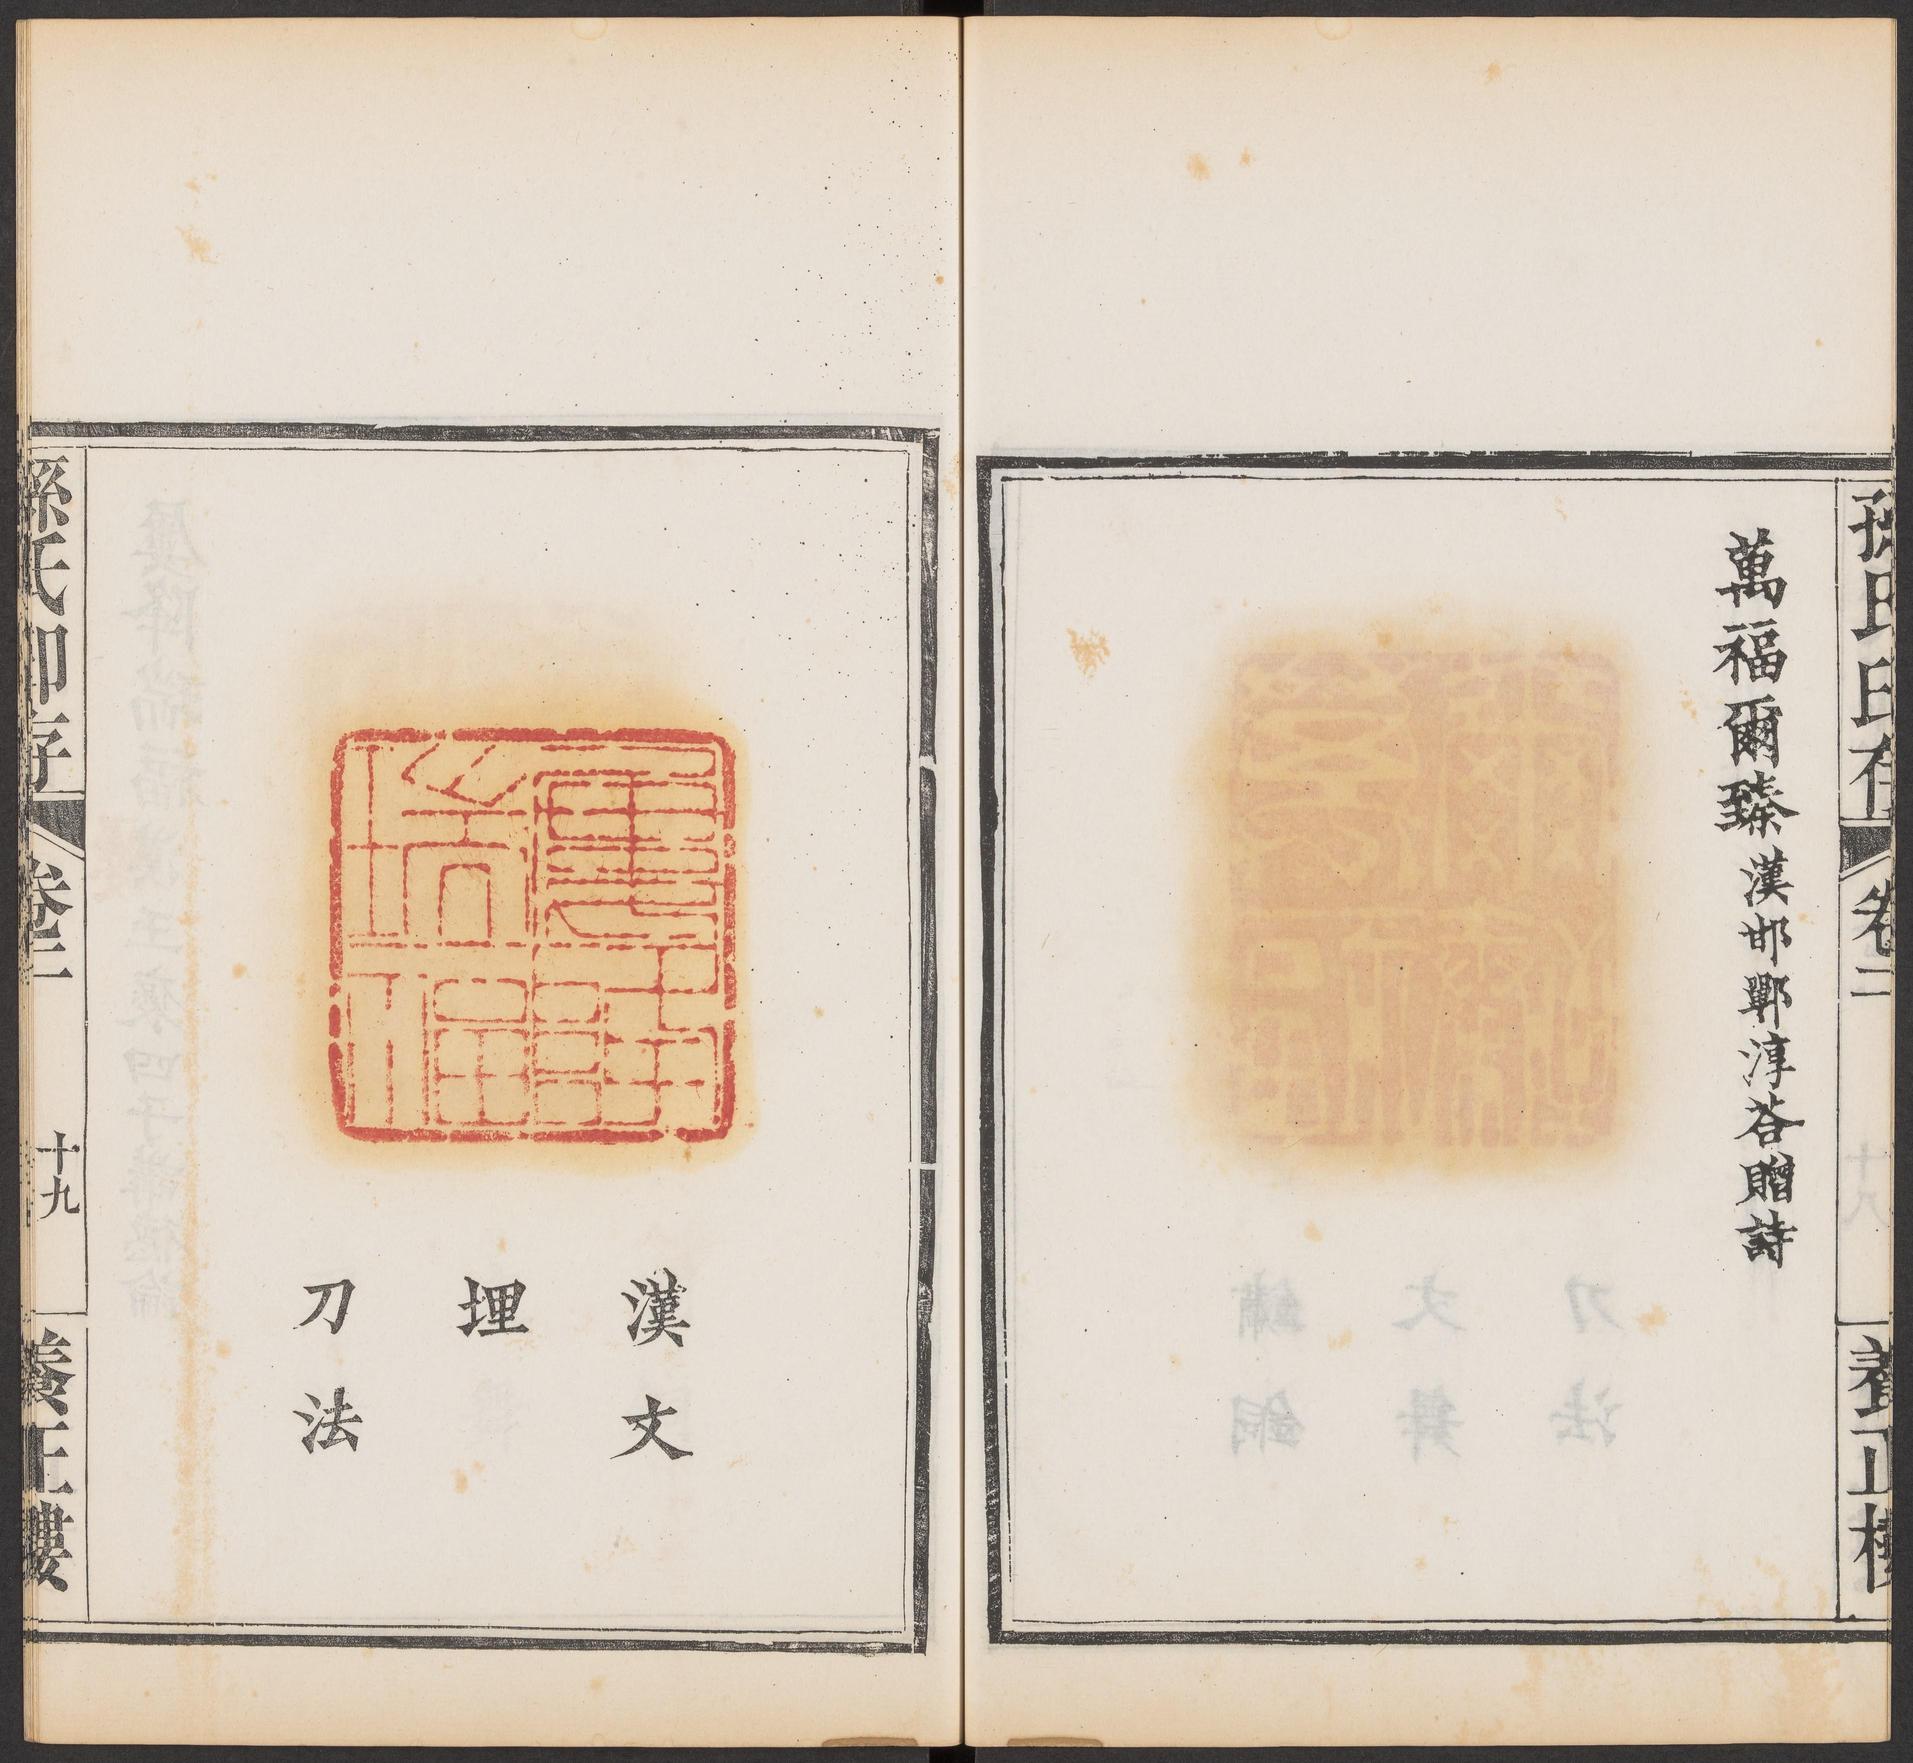 孫氏印存 卷二 養正樓
萬福爾臻 漢邯鄲淳荅贈詩
漢文
埋
刀法
孫氏印存 卷二 十九 養正樓